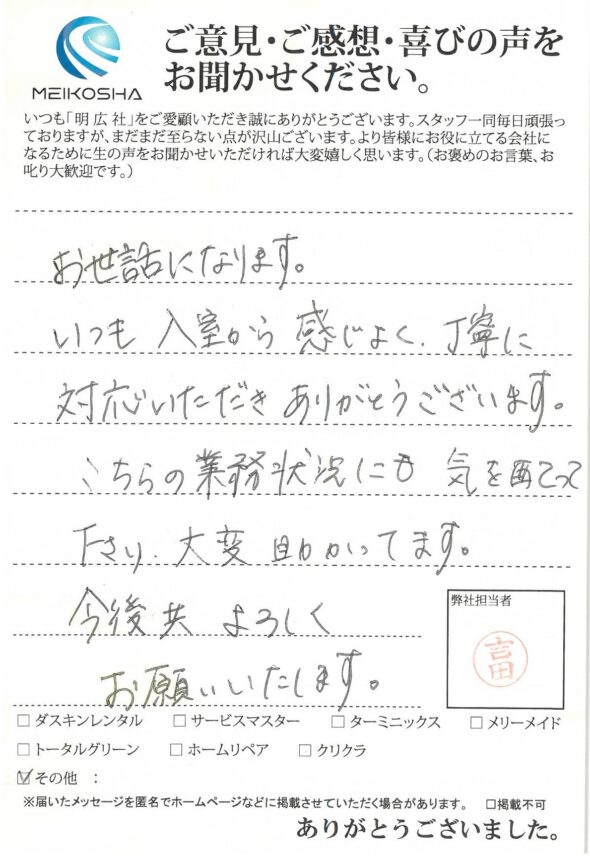 MEIKOSHA
ご意見・ご感想・喜びの声を
お聞かせください。
いつも「明 広 社」をご愛顧いただき誠にありがとうございます。スタッフ一同毎日頑張っ
ておりますが、まだまだ至らない点が沢山ございます。より皆様にお役に立てる会社に
なるために生の声をお聞かせいただければ大変嬉しく思います。（お褒めのお言葉、お
叱り大歓迎です。）
お世話になります。
いつも 入室から 感じよく、丁寧に
対応いただき ありがとうございます。
こちらの業務状況にも 気を配って
下さり、大変 助かってます。
今後共 よろしく
お願いいたします。
弊社担当者
吉田
□ ダスキンレンタル □ サービスマスター □ ターミニックス □ メリーメイド
□ トータルグリーン □ ホームリペア □ クリクラ
☑ その他 ：
※届いたメッセージを匿名でホームページなどに掲載させていただく場合があります。 □掲載不可
ありがとうございました。